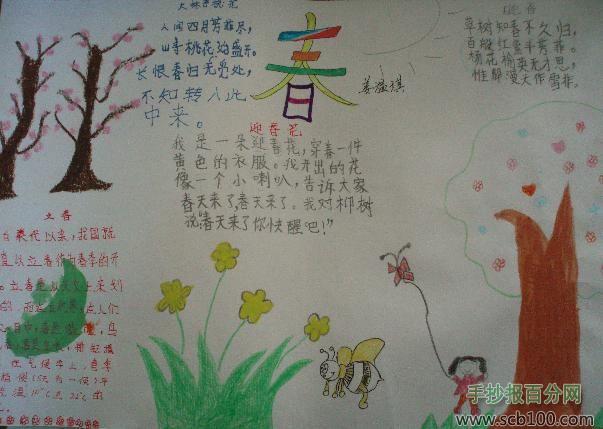 大林寺桃花
人间四月芳菲尽,
山寺桃花始盛开。
长恨春归无觅处,
不知转入此
中来。
春
姜温琪
晚春
草树知春不久归,
百般红紫斗芳菲。
杨花榆荚无才思,
惟解漫天作雪飞。
迎春花
我是一朵迎春花,穿着一件
黄色的衣服。我开出的花
像一个小喇叭,告诉大家
春天来了,春天来了。我对柳树
说:"春天来了你快醒吧!"
立春
自秦代以来,我国就
直以立春作为春季的开
立春是以天文上来划
人们
日中,春是
鸟
在气候学上,春季
候5天为一候)平
手抄报百分网
www.scb100.com